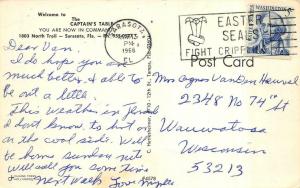 Welcome to
The CAPTAIN'S TABLE
YOU ARE NOW IN COMMAND
1803 North Trail - Sarasota, Fla.
SARASOTA
PM
1968
FL
EASTER
SEALS
FIGHT CRIPPLING
WASHINGTON
Post Card
Dear Van.
I do hope you are
much better & able to
be out a little.
This weather is
don't know, to hot or
on the cool side. Will
be home sunday nite
will call you some time
next week. Love
Mrs Agnes Van Den Heuvel
2348 No 74th St
Wauwatosa
Wisconsin
53213